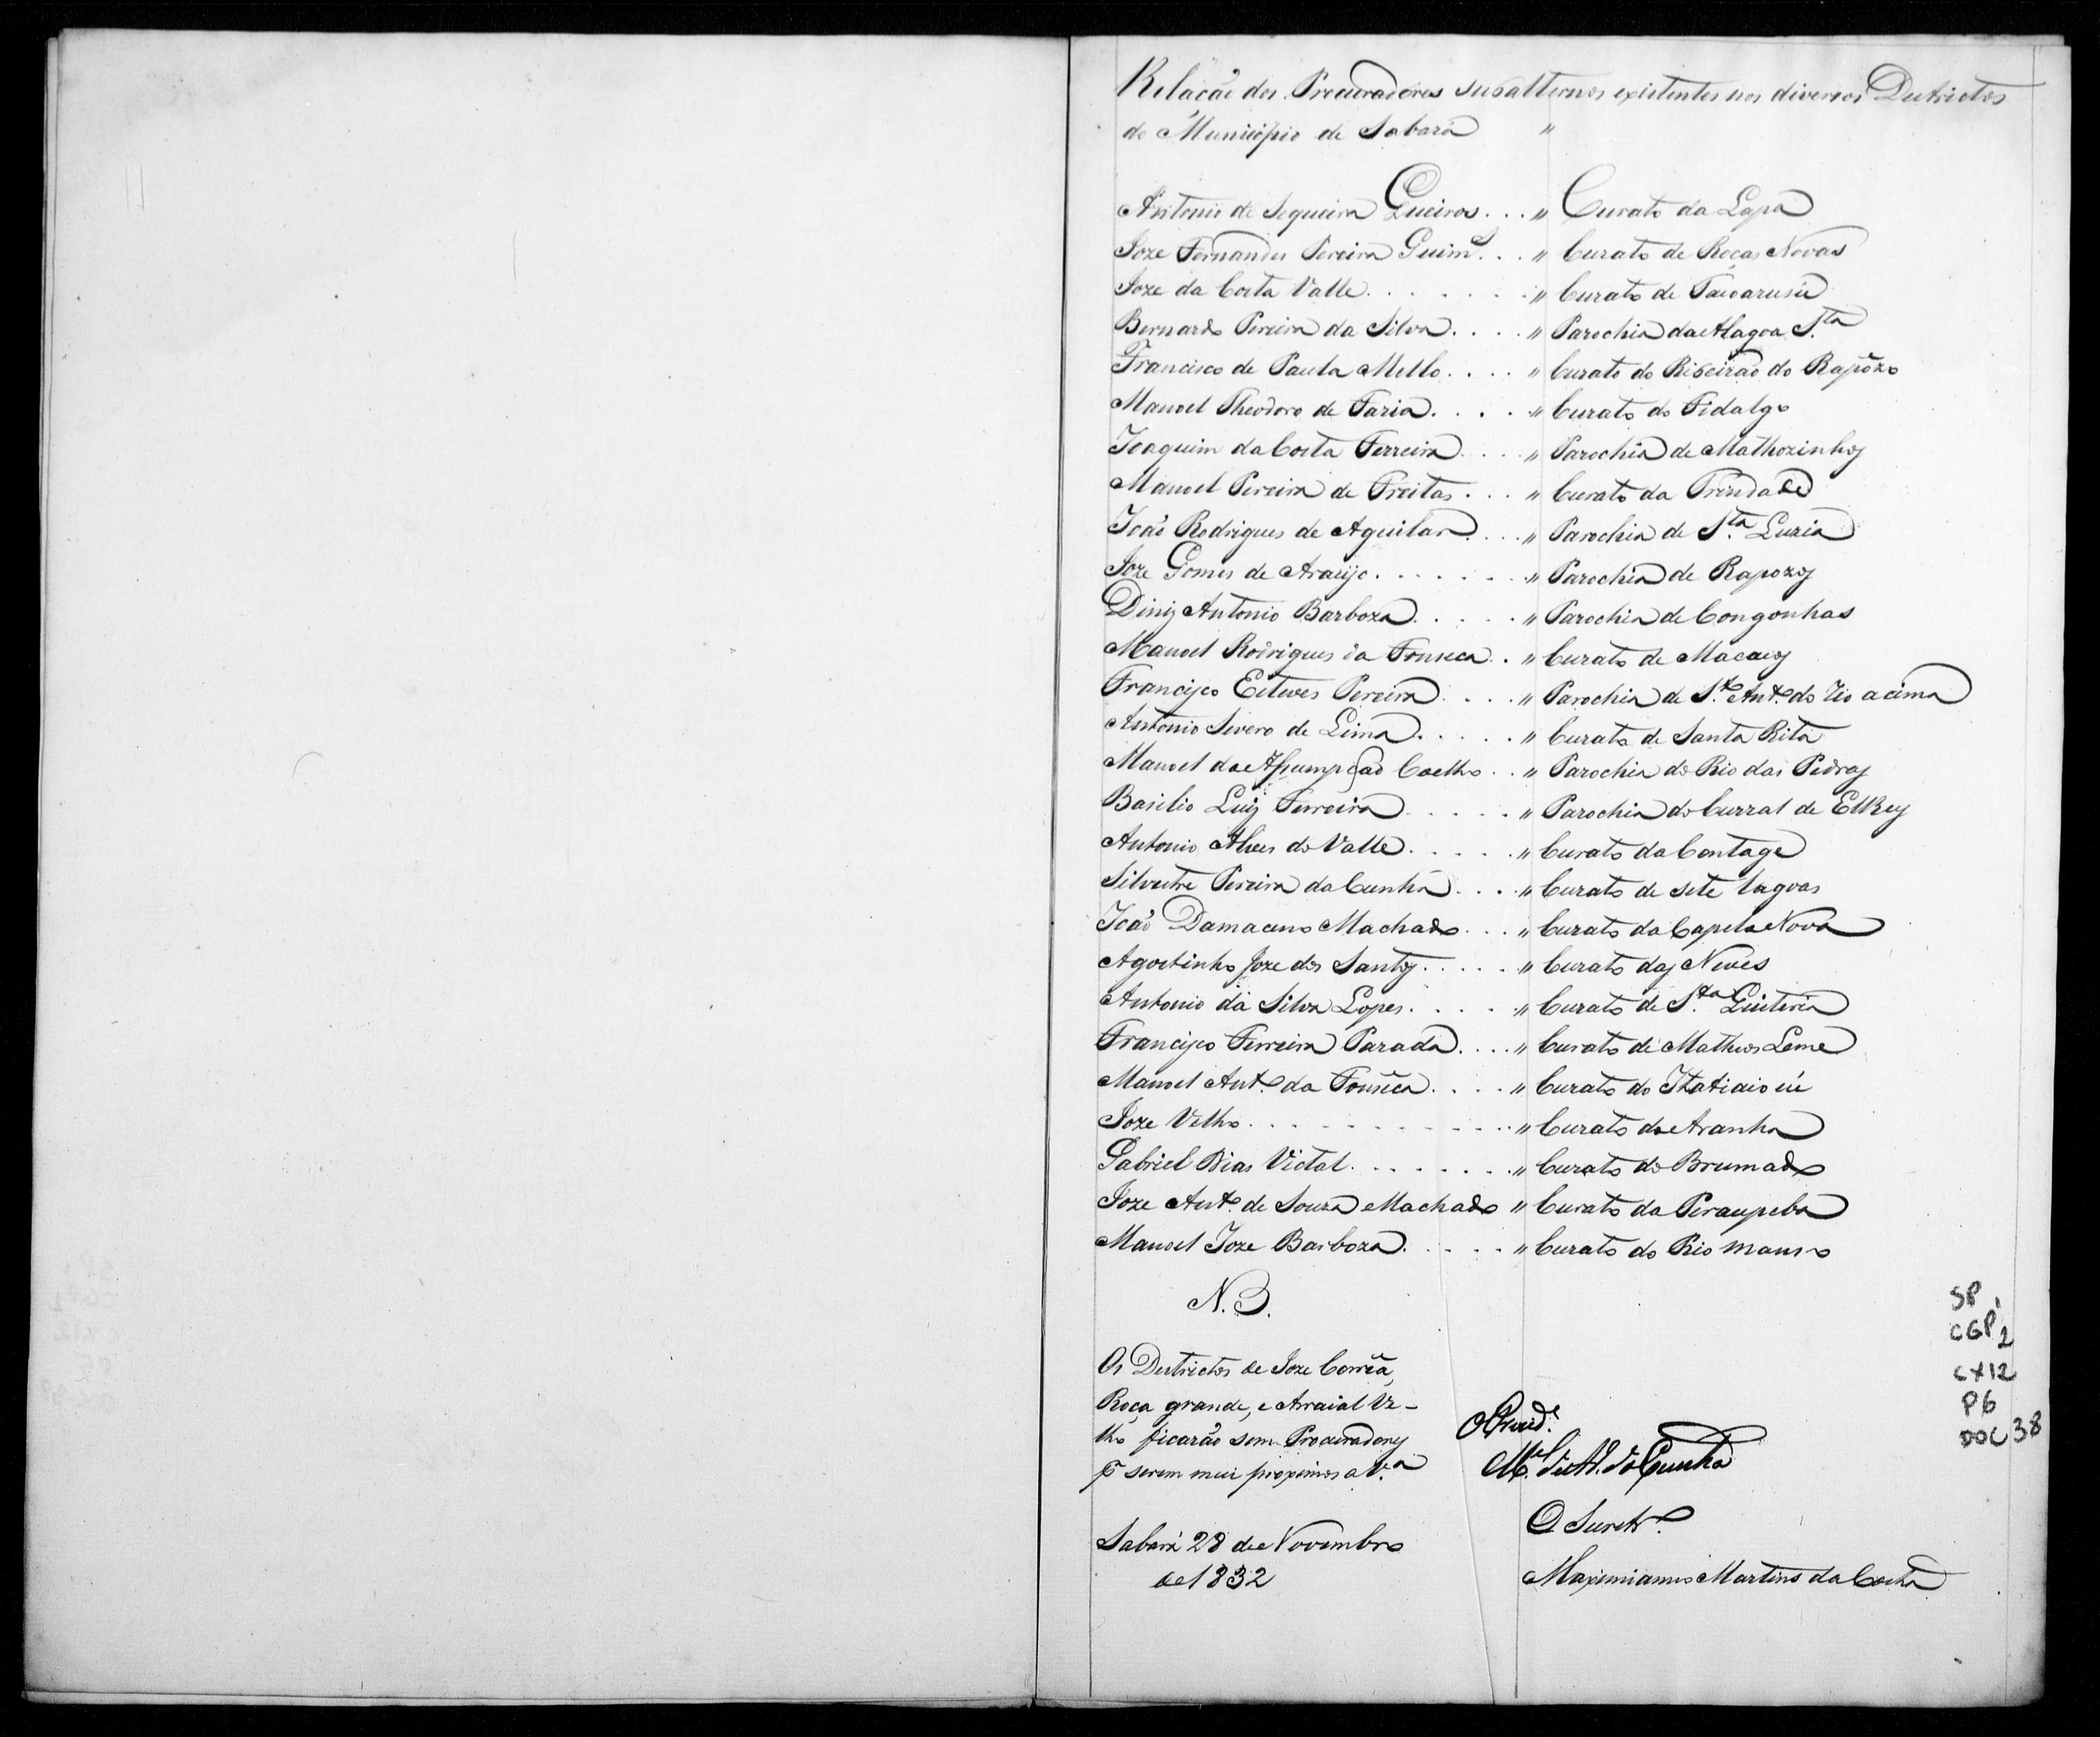 Relação dos Procuradores subalternos existentes nos diversos Destrictos
do Municipio de Sabará "
Antonio de Sequeira Queiros. . . " Curato da Lapa
Joze Fernandes Pereira Guim.es . . " Curato de Roças Novas
Joze da Costa Valle. . . . . . . " Curato de Taicarusú
Bernardo Pereira da Silva. . . . " Parochia da Alagoa S.ta
Francisco de Paula Mello. . . . " Curato do Ribeirão do Rapôzo
Manoel Theodoro de Faria. . . . " Curato do Fidalgo
Joaquim da Costa Ferreira. . . . " Parochia de Mathozinhos
Manoel Pereira de Freitas. . . " Curato da Trindade
João Rodrigues de Aguilar. . . . " Parochia de S.ta Luzia
Joze Gomes de Araujo. . . . . . . " Parochia de Rapozos
Diniz Antonio Barboza. . . . . " Parochia de Congonhas
Manoel Rodrigues da Fonseca. . " Curato de Macacos
Francisco Esteves Pereira. . . . " Parochia de S.to Ant.o do rio acima
Antonio Severo de Lima. . . . . " Curato de Santa Rita
Manoel da Assumpção Coelho. . " Parochia do Rio das Pedras
Basilio Luiz Ferreira. . . . . " Parochia do Curral de ElRey
Antonio Alves do Valle. . . . . " Curato da Contage
Silvestre Pereira da Cunha. . . . " Curato de sete lagoas
João Damaceno Machado. . . " Curato da Capela Nova
Agostinho Joze dos Santos. . . . . " Curato das Neves
Antonio da Silva Lopes. . . . . " Curato de S.ta Quiteria
Francisco Ferreira Parada. . . . " Curato de Matheos Leme
Manoel Ant.o da Fonseca. . . . " Curato do Itatiaioçú
Joze Velho. . . . . . . . . . . . " Curato do Aranha
Gabriel Dias Victal. . . . . . . " Curato do Brumado
Joze Ant.o de Souza Machado " Curato da Peraupeba
Manoel Joze Barboza. . . . . " Curato do Rio manso
N.B.
Os Destrictos de Joze Corrêa,
Roça grande, e Arraial Ve-
lho ficarão sem Procuradores
p serem mui proximos a V.a
O Prezid.e
M.el da Cunha
O Secretr.o
Maximiano Martins da Costa
Sabará 28 de Novembro
de 1832
SP
CGP 2
CX12
P6
DOC 38